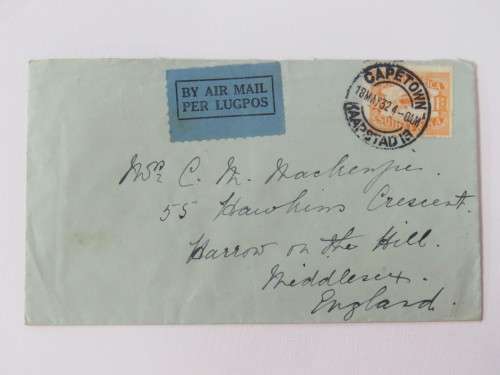 BY AIR MAIL
PER LUGPOS
CAPETOWN
18 MAY 32 4 - AM
KAAPSTAD
Mrs C. M. Mackenzie
55 Hawkins Crescent.
Harrow on the Hill.
Middlesex.
England.